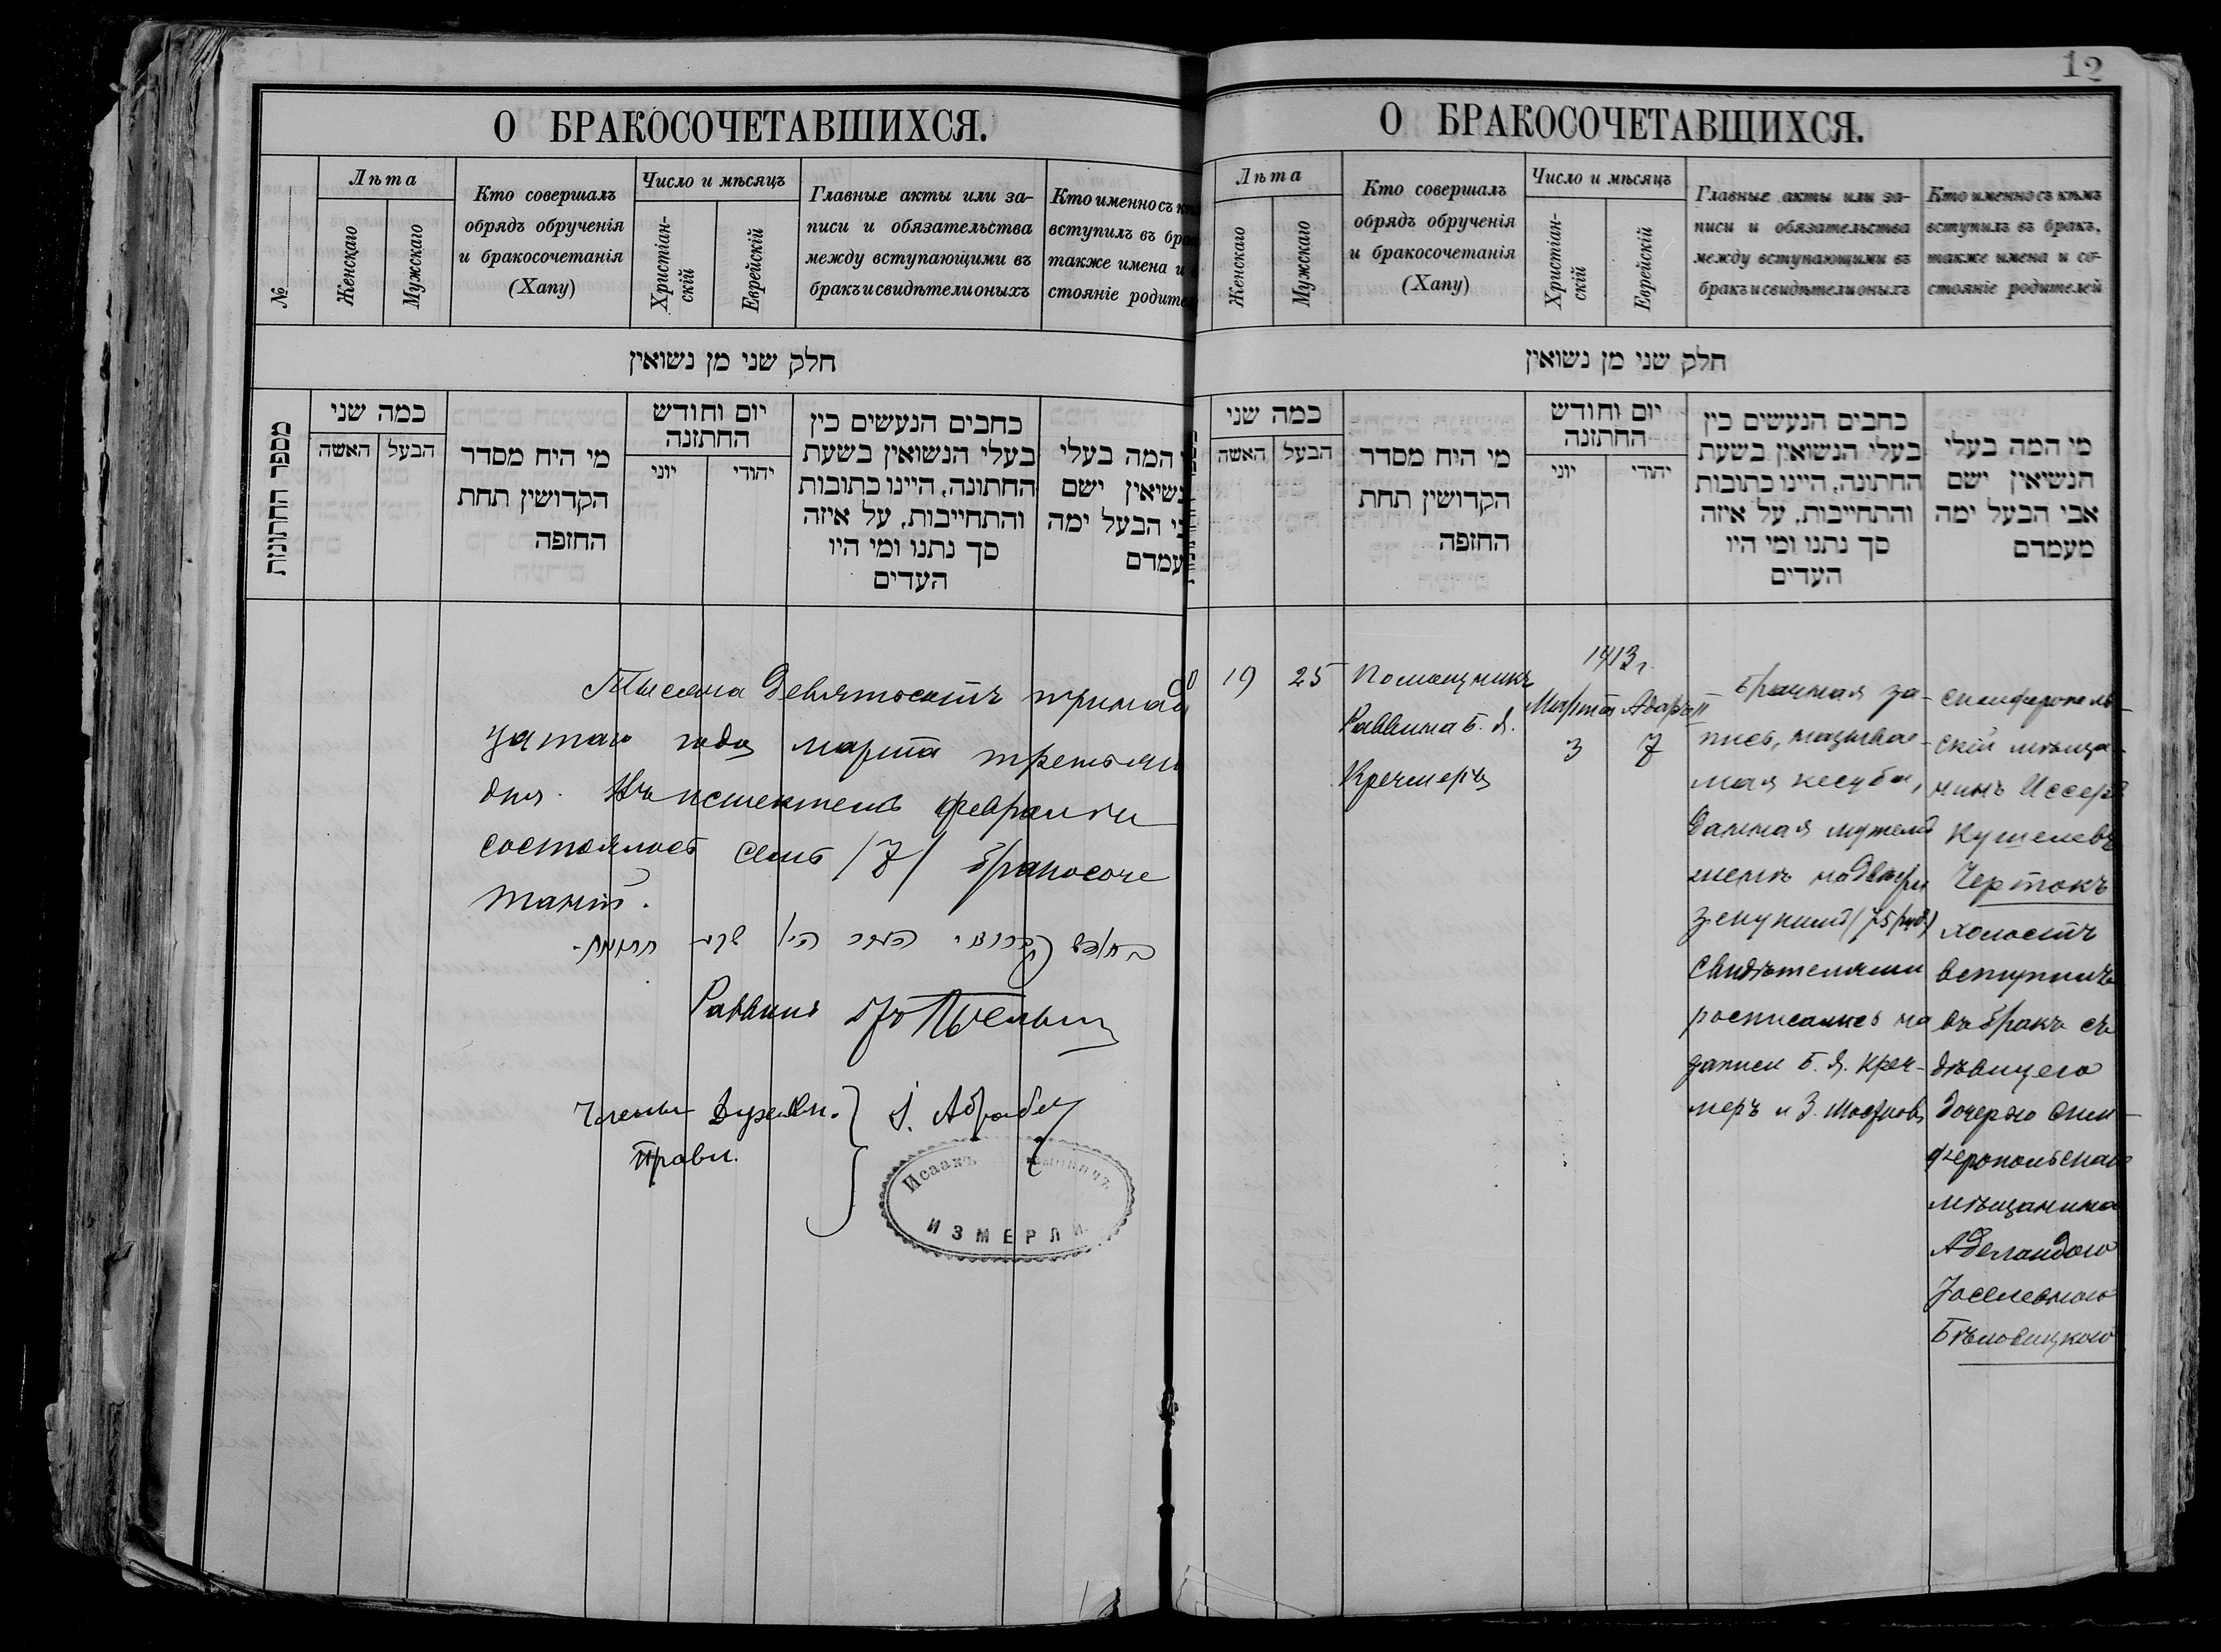 О БРАКОСОЧЕТАВШИХСЯ.
№
Лѣта
Женскаго
Мужскаго
Кто совершалъ
обрядъ обрученія
и бракосочетанія
(Хапу)
Число и мѣсяцъ
Христіан-
скій
Еврейскій
Главные акты или за-
писи и обязательства
между вступающими въ
бракъ и свидѣтели оныхъ
Кто именно съ
вступилъ въ
также имена и
стояніе
חלק שני מן נשואין
מספר החתונות
כמה שני
האשה
הבעל
מי היח מסדר
הקדושין תחת
החזפה
יום וחודש
החתזנה
יוני
יהודי
כחבים הנעשים כין
בעלי הנשואין בשעת
החתונה, היינו כתובות
והתחייבות, על איזה
סך נתנו ומי היו
העדים
המה בעלי
ישם
הבעל ימה
Тысяча девятьсотъ тринад
цатаго года марта третьяго
дня. Въ истекшемъ февралѣ
состоялось семь /7/ бракосоче
таній.
Раввинъ
Члены Духовн.
Правл.
Исаакъ
ИЗМЕРЛИ
12
О БРАКОСОЧЕТАВШИХСЯ.
Лѣта
Женскаго
Мужскаго
Кто совершалъ
обрядъ обрученія
и бракосочетанія
(Хапу)
Число и мѣсяцъ
Христіан-
скій
Еврейскій
Главные акты или за-
писи и обязательства
между вступающими въ
бракъ и свидѣтели оныхъ
Кто именно съ кѣмъ
вступилъ въ бракъ,
также имена и со-
стояніе родителей
חלק שני מן נשואין
כמה שני
האשה
הבעל
מי היח מסדר
הקדושין תחת
החזפה
יום וחודש
החתזנה
יוני
יהודי
כחבים הנעשים כין
בעלי הנשואין בשעת
החתונה, היינו כתובות
והתחייבות, על איזה
סך נתנו ומי היו
העדים
מי המה בעלי
הנשיאין ישם
אבי הבעל ימה
מעמדם
19
25
Помощникъ
Раввина Б. Я.
Кречмеръ
1913 г.
Марта
3
Адаръ II
7
Брачная за-
пись, называе-
мая кесуба,
данная мужемъ
женѣ на двѣсти
зекукимъ (75 руб.)
Свидѣтелями
росписались на
записи Б. Я. Креч-
меръ и З.
Симферополь-
скій мѣща-
нинъ Иссеръ
Кушелевъ
Чертокъ
холостъ
вступилъ
въ бракъ съ
дѣвицею
дочерью Сим-
феропольскаго
мѣщанина
Аделаидою
Іоселевною
Бѣловицкою